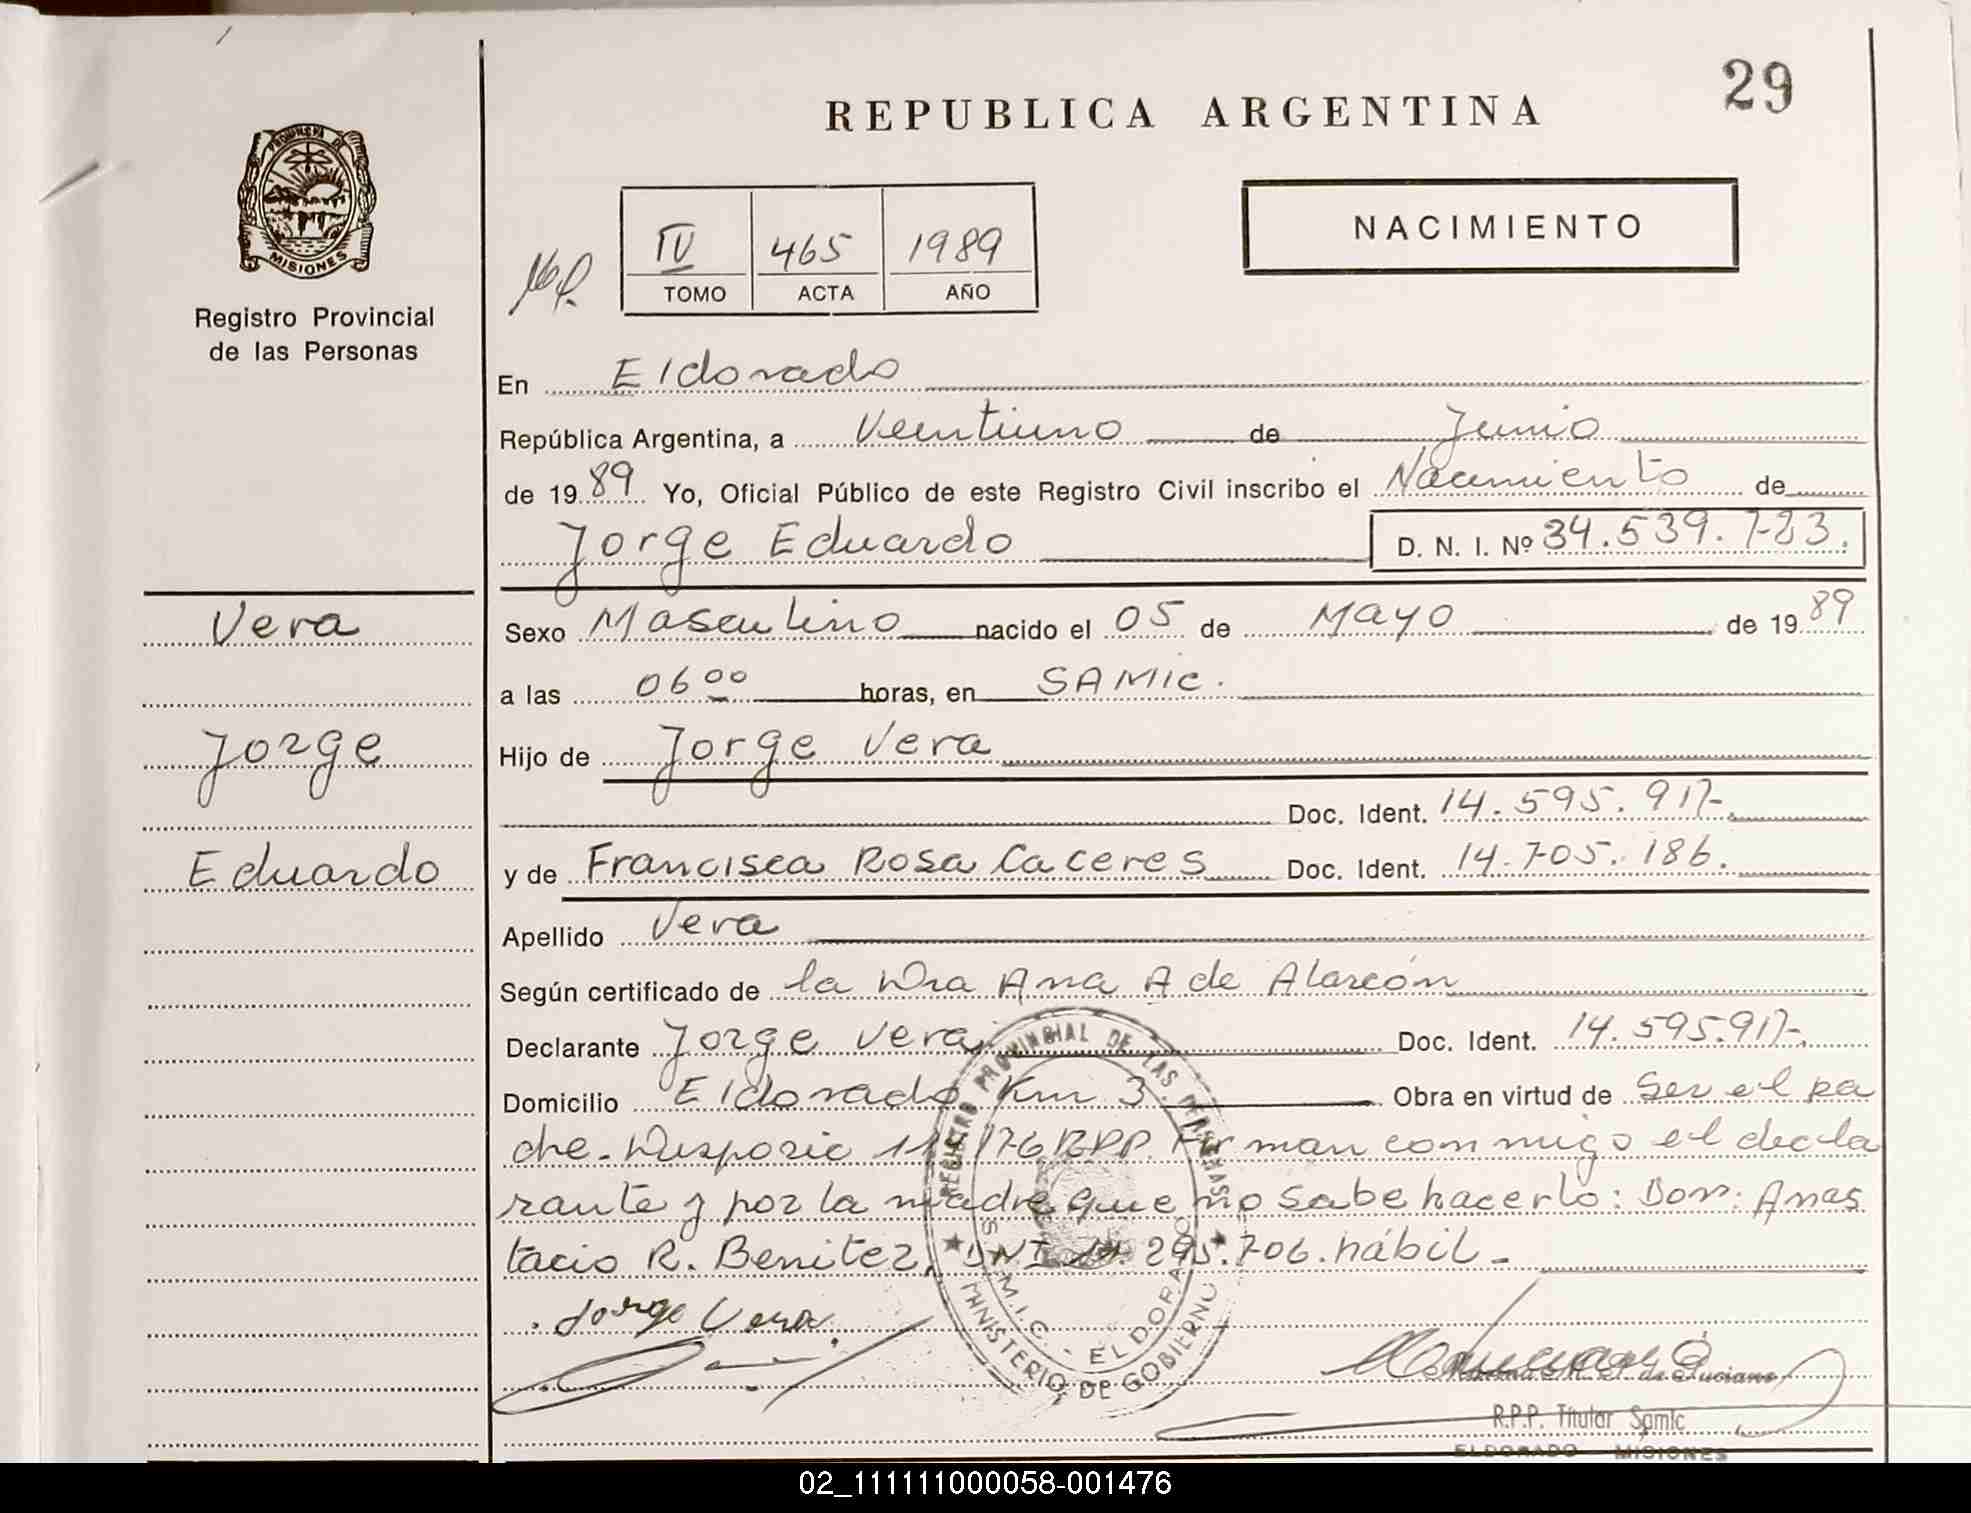 29
REPUBLICA ARGENTINA
PROVINCIA DE
MISIONES
Registro Provincial
de las Personas
IV 465 1989
TOMO ACTA AÑO
NACIMIENTO
En Eldorado
República Argentina, a Veintiuno de Junio
de 1989 Yo, Oficial Público de este Registro Civil inscribo el Nacimiento de
Jorge Eduardo D. N. I. Nº 34.539.723.
Vera
Jorge
Eduardo
Sexo Masculino nacido el 05 de Mayo de 1989
a las 06 00 horas, en SAMic.
Hijo de Jorge Vera
Doc. Ident. 14.595.917.
y de Francisca Rosa Caceres Doc. Ident. 14.705.186.
Apellido Vera
Según certificado de la Dra Ana A de Alarcón
Declarante Jorge Vera Doc. Ident. 14.595.917.
Domicilio Eldorado Km 3. Obra en virtud de Ser el pa
dre. Disposic 11/76 RPP. Firman conmigo el decla
rante y por la madre que no sabe hacerlo: Don: Anas
tacio R. Benitez, DNI 295.706. hábil.
Jorge Vera
REGISTRO PROVINCIAL DE LAS PERSONAS
S.A.M.I.C. - ELDORADO
MINISTERIO DE GOBIERNO
de Luciano
R.P.P. Titular Samic
ELDORADO MISIONES
02_111111000058-001476